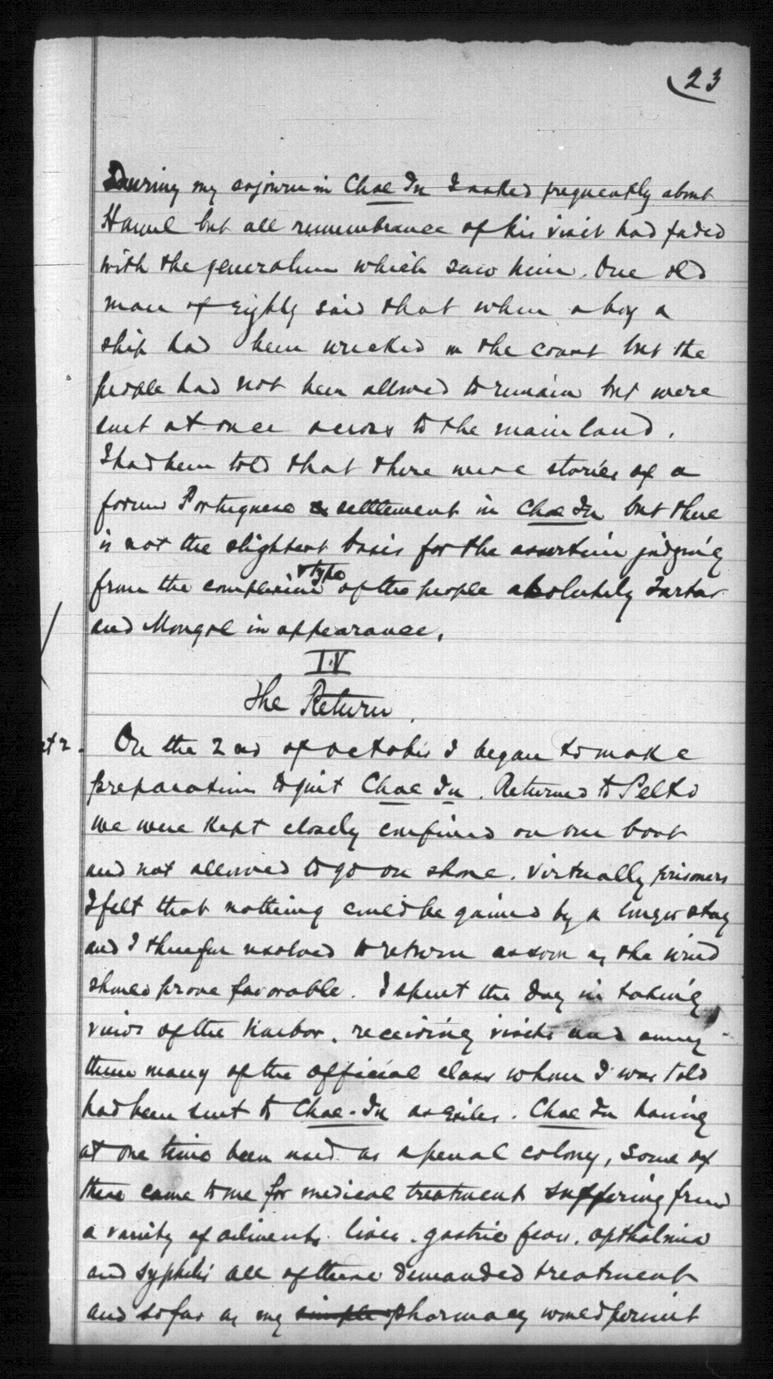 23
During my sojourn in Chae Ju I asked frequently about
Hamel but all remembrance of his visit had faded
with the generation which saw him. One old
man of Eighty said that when a boy a
ship had been wrecked on the coast but the
people had not been allowed to remain but were
sent at once across to the mainland.
I had been told that there were stories of a
former Portuguese settlement in Chae Ju but there
is not the slightest basis for the assertion judging
from the complexion & type of the people absolutely Tartar
and Mongol in appearance.
IV
The Return.
Oct 2. On the 2nd of October I began to make
preparation to quit Chae Ju. Returned to Pelto
we were kept closely confined on our boat
and not allowed to go on shore. virtually prisoners
I felt that nothing could be gained by a longer stay
and I therefore resolved to return as soon as the wind
should prove favorable. I spent the day in taking
views of the Harbor, receiving visits and among
them many of the official class whom I was told
had been sent to Chae-Ju as Exiles. Chae Ju having
at one time been used as a penal colony, Some of
these came to me for medical treatment suffering from
a variety of ailments. liver. gastric opthalmia
and syphilis all of these demanded treatment
and so far as my simple pharmacy would permit